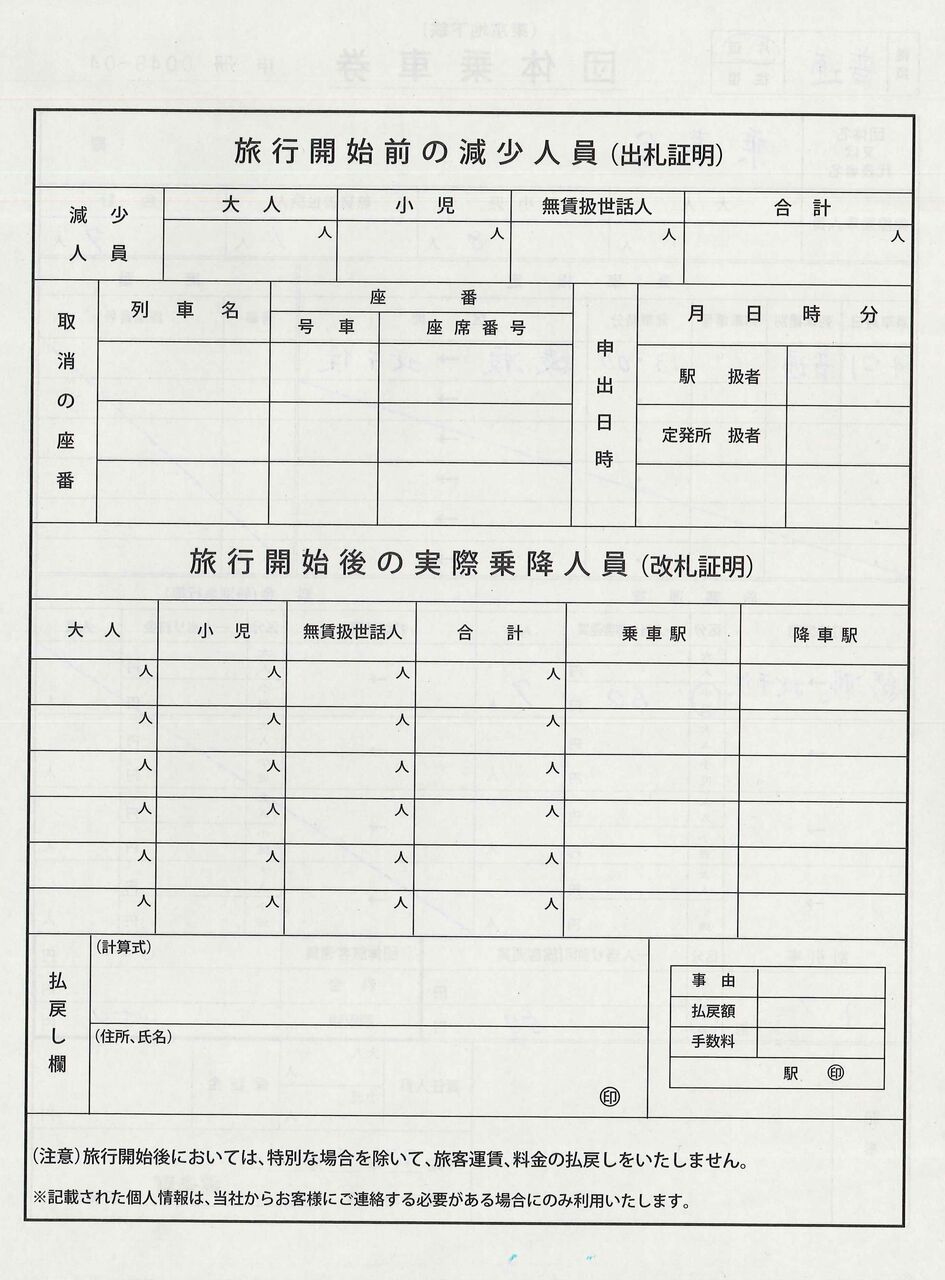 旅行開始前の減少人員(出札証明)
減少人員 大人 小児 無賃扱世話人 合計
人 人 人 人
取消の座番 列車名 座番 申出日時 月日時分
号車 座席番号
駅 扱者
定発所 扱者
旅行開始後の実際乗降人員(改札証明)
大人 小児 無賃扱世話人 合計 乗車駅 降車駅
人 人 人 人
人 人 人 人
人 人 人 人
人 人 人 人
人 人 人 人
人 人 人 人
払戻し欄 (計算式)
事由
払戻額
(住所、氏名) 手数料
駅 ㊞
㊞
(注意)旅行開始後においては、特別な場合を除いて、旅客運賃、料金の払戻しをいたしません。
※記載された個人情報は、当社からお客様にご連絡する必要がある場合にのみ利用いたします。